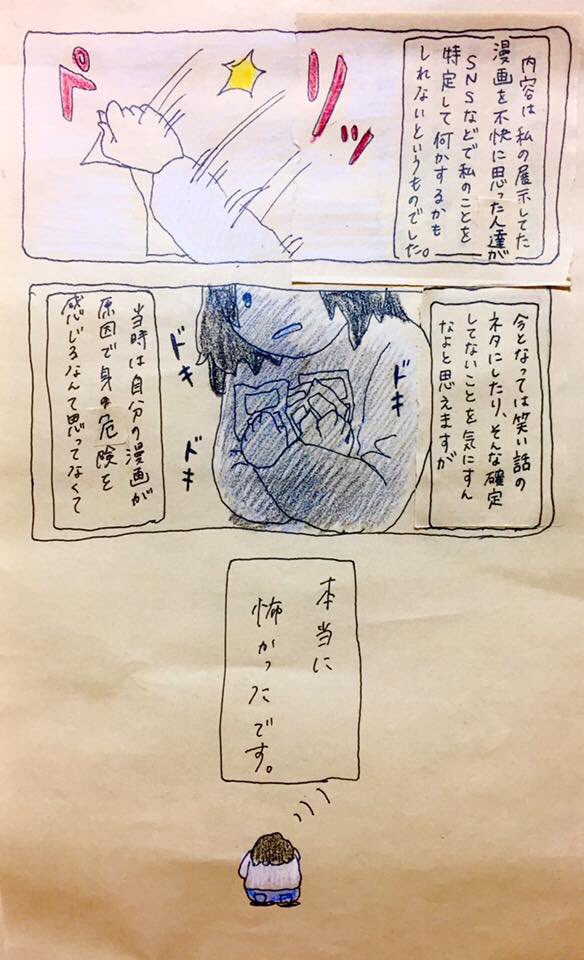 内容は私の展示してた
漫画を不快に思った人達が
SNSなどで私のことを
特定して何かするかも
しれないというものでした。
ペリッ
今となっては笑い話の
ネタにしたり、そんな確定
してないことを気にすん
なよと思えますが
ドキ
ドキ
ドキ
当時は自分の漫画が
原因で身の危険を
感じるなんて思ってなくて
本当に
怖かったです。